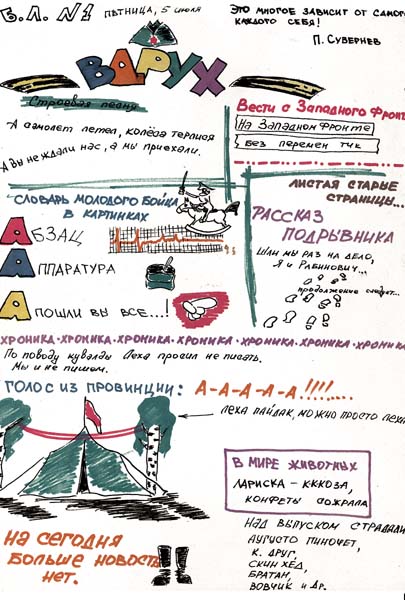 Б.Л. №1 ПЯТНИЦА, 5 июля
ЭТО МНОГОЕ ЗАВИСИТ ОТ САМОГО
КАЖДОГО СЕБЯ!
П. СУВЕРНЕВ
ВДРУХ
Строевая песня
А самолет летел, колёса терлися
А вы не ждали нас, а мы приехали.
Вести с Западного фронта
На Западном фронте
Без перемен тчк
СЛОВАРЬ МОЛОДОГО БОЙЦА
В КАРТИНКАХ
АБЗАЦ
АППАРАТУРА
АПОШЛИ ВЫ ВСЕ...!
ЛИСТАЯ СТАРЫЕ
СТРАНИЦЫ...
РАССКАЗ
ПОДРЫВНИКА
ШЛИ МЫ РАЗ НА ДЕЛО,
Я и РАБИНОВИЧ...
продолжение следует...
ХРОНИКА·ХРОНИКА·ХРОНИКА·ХРОНИКА·ХРОНИКА·ХРОНИКА·ХРОНИКА
По поводу кувалды Леха просил не писать.
Мы и не пишем.
ГОЛОС ИЗ ПРОВИНЦИИ: А-А-А-А-А!!!!...
ЛЕХА ПАЙДАК, МОЖНО ПРОСТО ЛЕХА
В МИРЕ ЖИВОТНЫХ
ЛАРИСКА - КККОЗА,
КОНФЕТЫ СОЖРАЛА
НАД ВЫПУСКОМ СТРАДАЛИ
АУГУСТО ПИНОЧЕТ,
К. ДРУГ,
СКИН ХЕД,
БРАТАН,
ВОВЧИК и др.
НА СЕГОДНЯ
БОЛЬШЕ НОВОСТЕЙ
НЕТ.